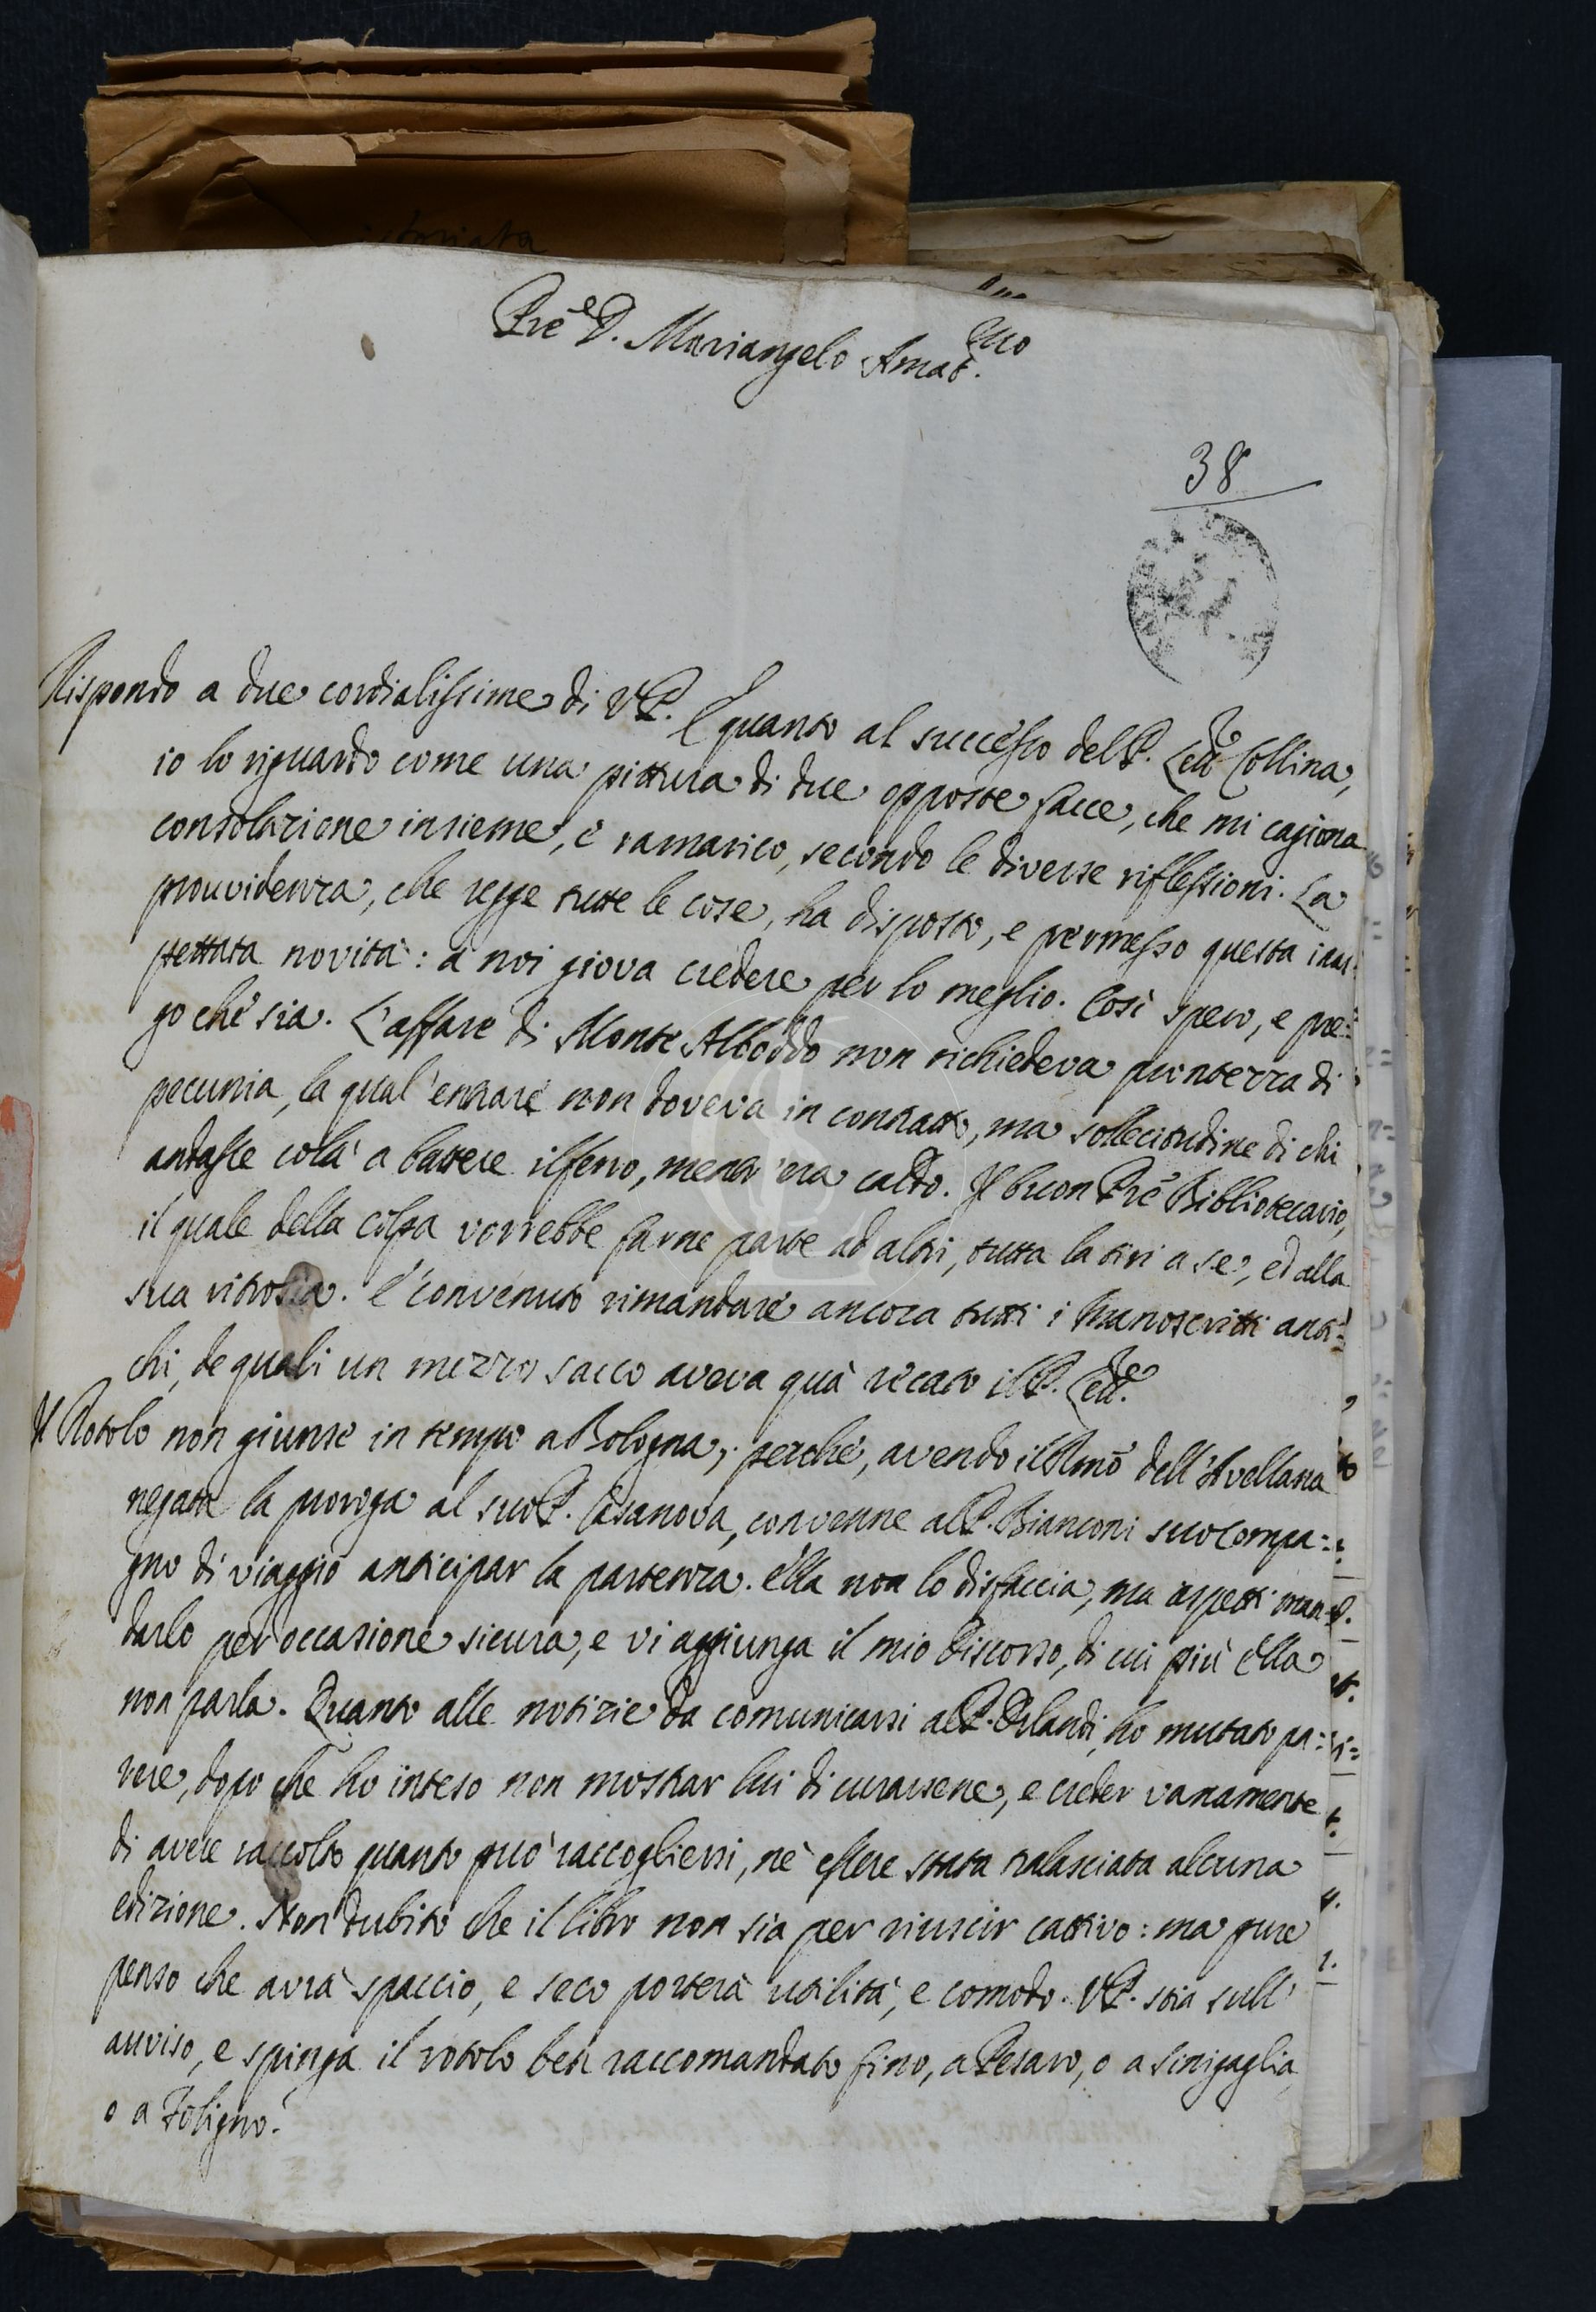 Pre D. Mariangelo Amat.mo
38
Rispondo a due cordialissime di V.P. E quanto al successo del P. Collina,
io lo riguardo come una pittura di due opposte facce, che mi cagiona
consolazione insieme, e ramarico, secondo le diverse riflessioni. La
prouvidenza, che regge tutte le cose, ha disposto, e permesso questa inas-
pettata novità: a noi giova credere per lo meglio. Così spero, e pre-
go che sia. L'affare di Monte Alboddo non richiedeva puntezza di
pecunia, la qual' entrare non doveva in contratto, ma sollecitudine di chi
andasse colà a battere il ferro, mentr'era caldo. Il buon Pre Bibliotecario,
il quale della colpa vorrebbe farne parte ad altri, tutta la tiri a se, ed alla
sua ritrosia. E' convenuto rimandare ancora tutti i Manoscritti anti=
chi, de quali un mezzo sacco aveva quà recato il P.
Il Rotolo non giunse in tempo a Bologna; perchè, avendo il Rmo dell'Avellana
negata la proroga al suo P. Casanova, convenne al P. Bianconi suo compa=
gno di viaggio anticipar la partenza. Ella non lo disfaccia, ma aspetti man-
darlo per occasione sicura, e vi aggiunga il mio discorso, di cui più Ella
non parla. Quanto alle notizie da comunicarsi al P. Orlandi, ho mutato pa=
rere, dopo che ho inteso non mostrar lui di curarsene, e creder vanamente
di avere raccolto quanto può raccogliersi, nè essere stata tralasciata alcuna
edizione. Non dubito che il libro non sia per riuscir cattivo: ma pure
penso che avrà spaccio, e seco porterà utilità, e comodo. V.P. stia sull'
auviso, e spinga il rotolo ben raccomandato fino, a Pesaro, o a Sinigaglia
o a Foligno.